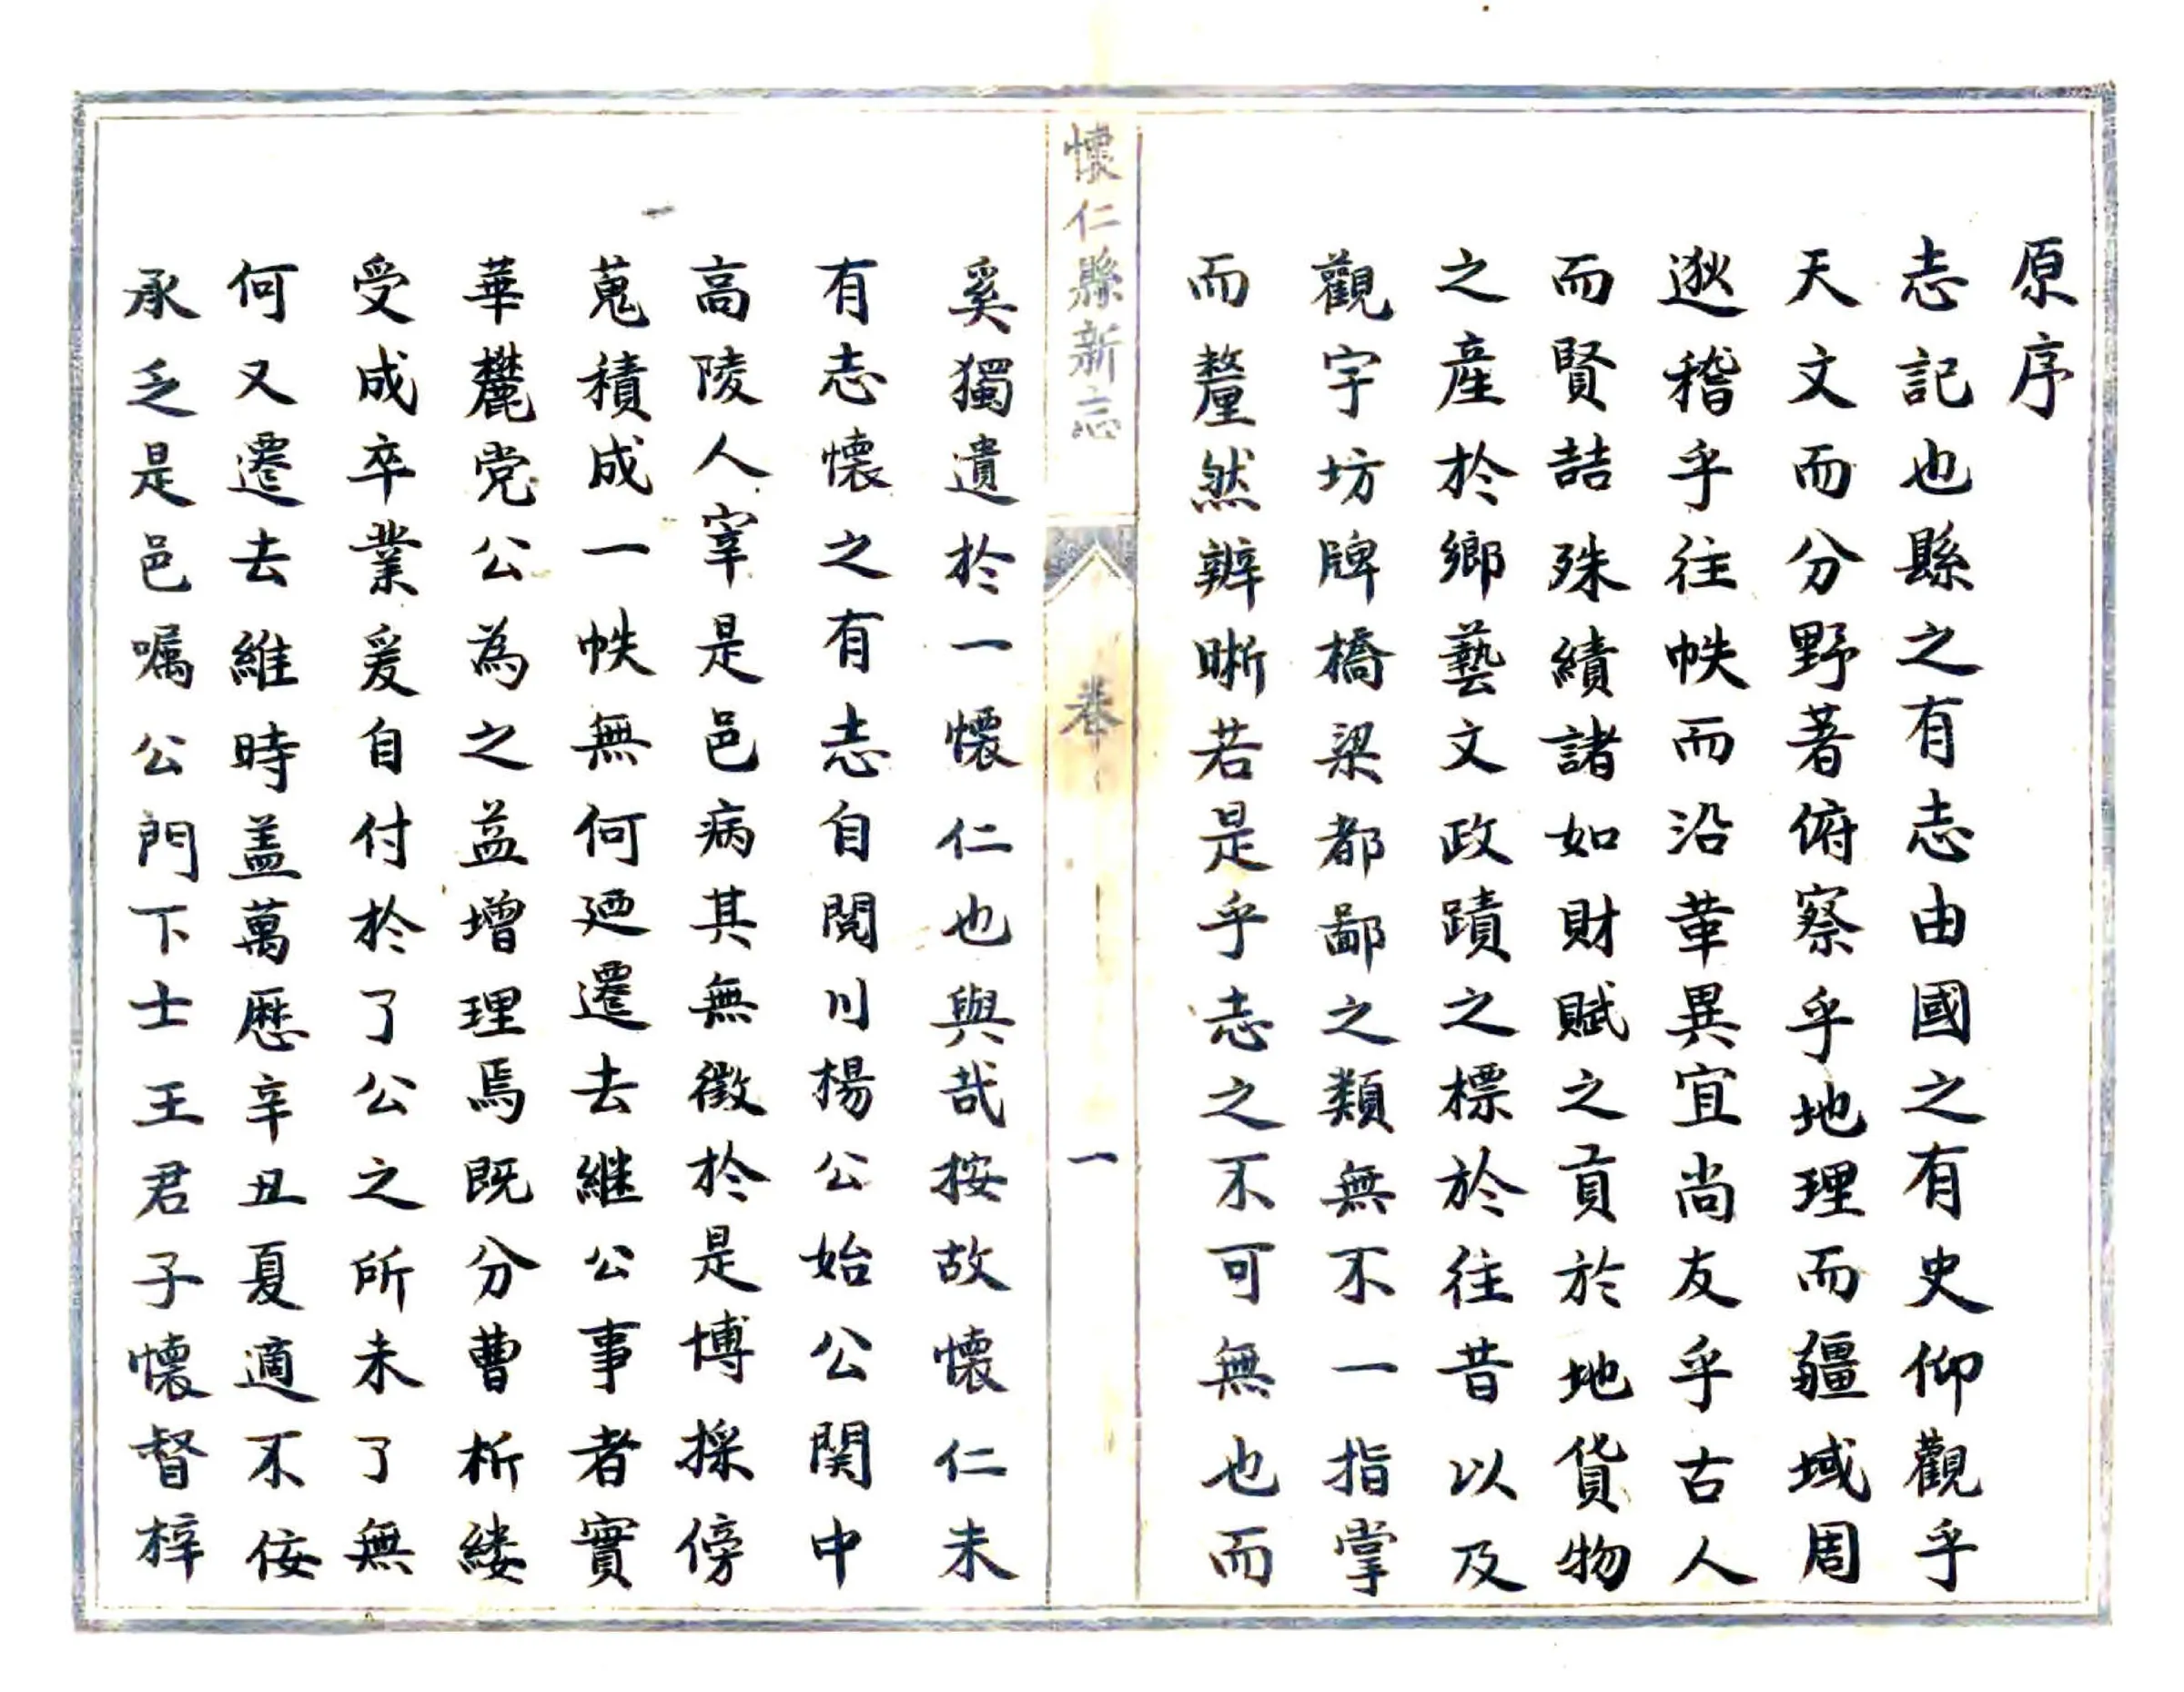 原序
志記也縣之有志由國之有史仰觀乎
天文而分野著俯察乎地理而疆域周
逖稽乎往帙而沿革異宜尚友乎古人
而賢喆殊績諸如財賦之貢於地貨物
之產於鄉藝文政蹟之標於往昔以及
觀宇坊牌橋梁都鄙之類無不一指掌
而釐然辨晰若是乎志之不可無也而
懷仁縣新志
卷
一
奚獨遺於一懷仁也與哉按故懷仁未
有志懷之有志自閱川楊公始公関中
高陵人宰是邑病其無徵於是博採傍
蒐積成一帙無何廼遷去継公事者實
華麓党公為之益增理焉既分曹析縷
受成卒業爰自付於了公之所未了無
何又遷去維時盖萬歷辛丑夏適不佞
承乏是邑嘱公門下士王君子懷督梓